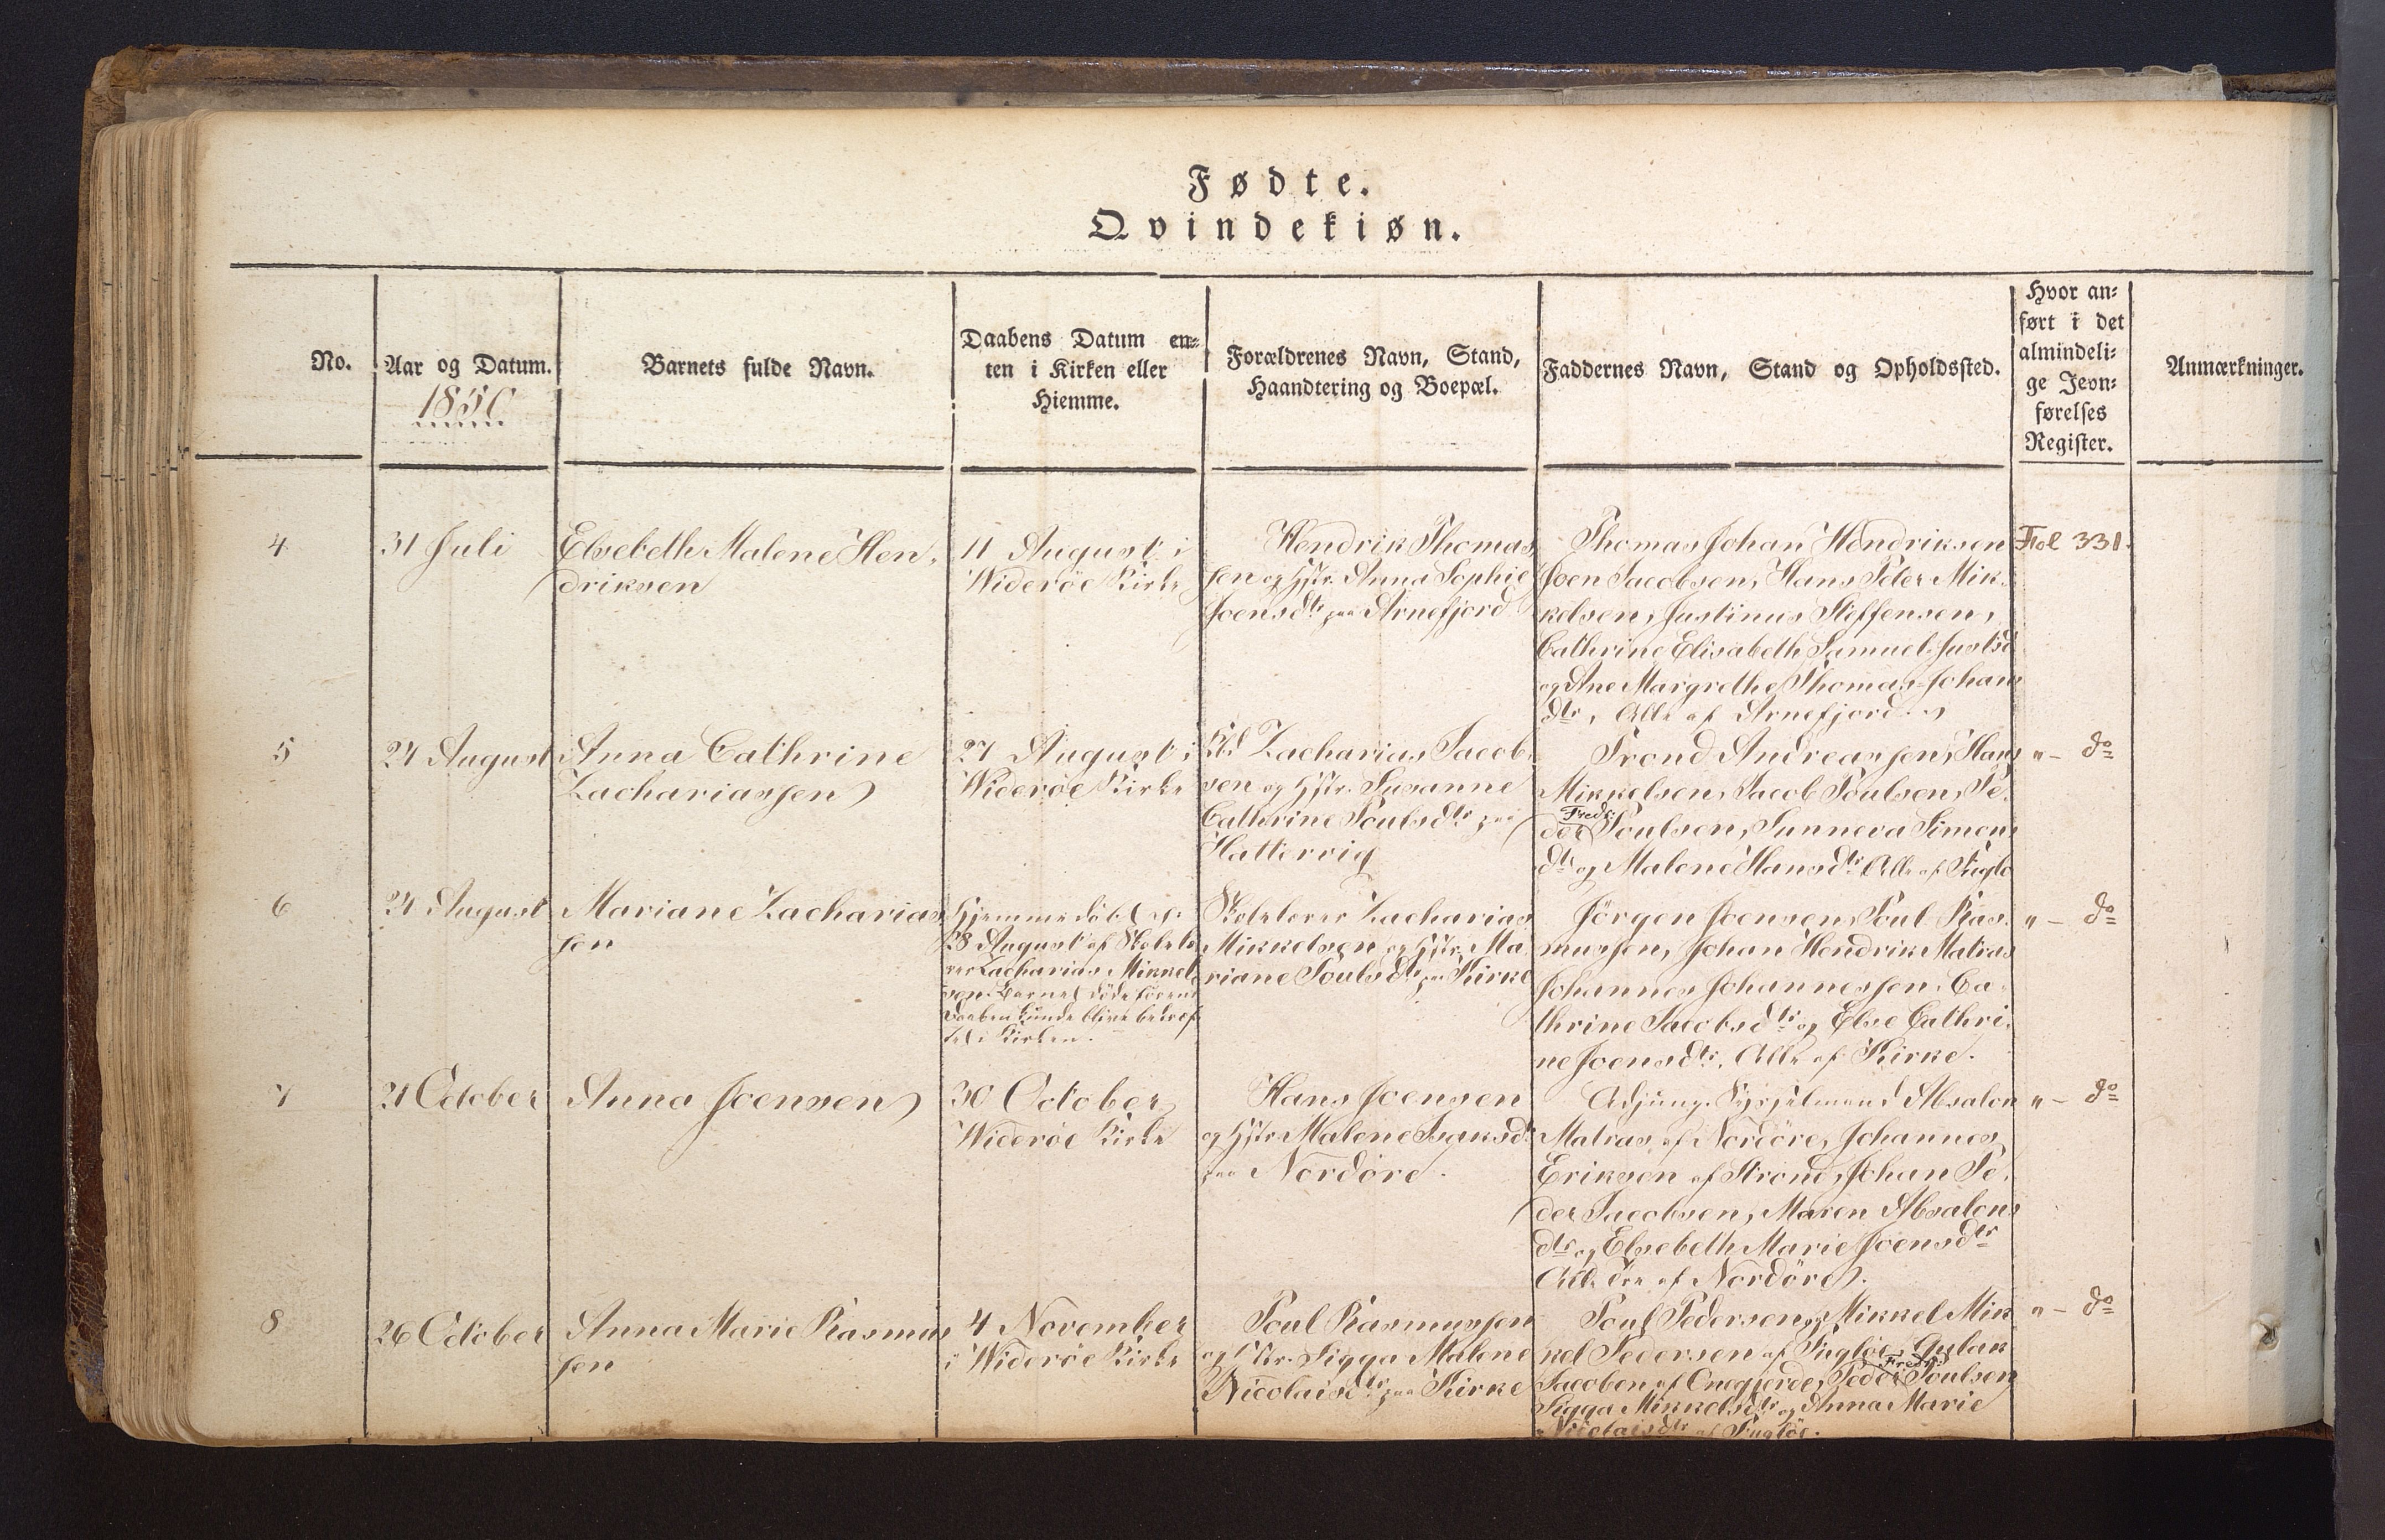 Fødte.
Qvindekiøn.
No.
Aar og Datum.
1850
Barnets fulde Navn.
Daabens Datum en-
ten i Kirken eller
Hiemme.
Forældrenes Navn, Stand,
Haandtering og Boepæl.
Faddernes Navn, Stand og Opholdssted.
Hvor an-
ført i det
almindeli-
ge Jevn-
førelses
Register.
Anmærkninger.
4
31 Juli
Elsebeth Malene Hen-
driksen
11 August i
Widerøe Kirke
Hendrik Thomas
sen og Hstr. Anna Sophie
Joensdtr paa Arnefjord
Thomas Johan Hendriksen
Joen Jacobsen, Hans Peter Mik-
kelsen, Justinus Steffensen,
Cathrine Elisabeth Samuel-Justsd
og Ane Margrethe Thomas-Johans
dtr, Alle af Arnefjord.
Fol 331.
5
24 August
Anna Cathrine
Zachariassen
27 August i
Widerøe Kirke
Zacharias Jacob-
sen og Hstr. Susanne
Cathrine Poulsdtr paa
Hattervig
Trond Andreassen, Hans
Mikkelsen, Jacob Poulsen, Pe-
der Fredr. Poulsen, Sunneva Simons
dtr og Malene Hansdtr Alle af Fuglø
" - do
6
24 August
Mariane Zacharias
sen
Hjemmedøbt d.
28 August af Skolelæ
rer Zacharias Mikkel-
sen. Barnet døde førend
Daaben kunde blive bekræf
tet i Kirken.
Skolelærer Zacharias
Mikkelsen og Hstr. Ma
riane Poulsdtr paa Kirke
Jørgen Joensen, Poul Ras-
mussen, Johan Hendrik Matras
Johannes Johannessen, Ca-
thrine Jacobsdtr og Else Cathri-
ne Joensdtr. Alle af Kirke.
" - do
7
21 October
Anna Joensen
30 October
Widerøe Kirke
Hans Joensen
og Hstr. Malene Isaksdtr
paa Nordøre.
Adjung. Sysselmand Absalon
Matras af Nordøre, Johannes
Eriksen af Strond, Johan Pe-
der Jacobsen, Maren Absalons
dtr og Elsebeth Marie Joensdtr
Alle tre af Nordøre.
" - do
8
26 October
Anna Marie Rasmus
sen
4 November
i Widerøe Kirke
Poul Rasmussen
og Hstr. Sigga Malene
Nicolaisdtr paa Kirke
Poul Pedersen, Mikkel Mik
kel Pedersen af Fugløe, Gulak
Jacobsen af Qnegjerde, Peder Fredr. Poulsen
Sigga Mikkelsdtr og Anna Marie
Nicolaisdtr af Fugløe.
" - do